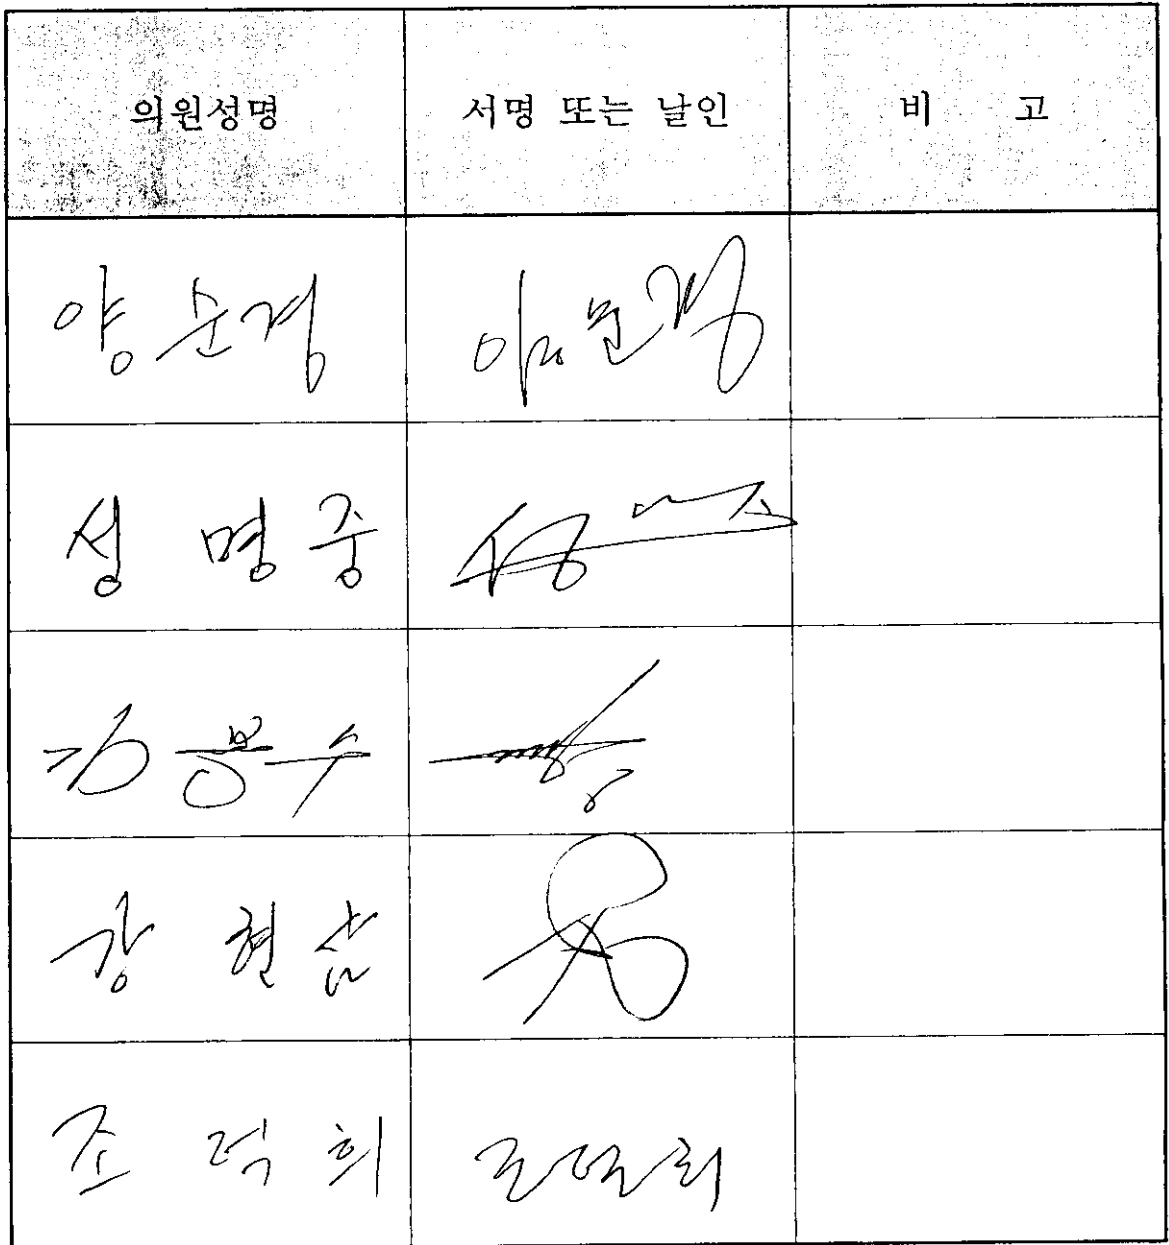 의원성명 서명 또는 날인 비 고
양순경 양순경
성 명 중
봉수
강 현 삼
조 덕 희 조덕희